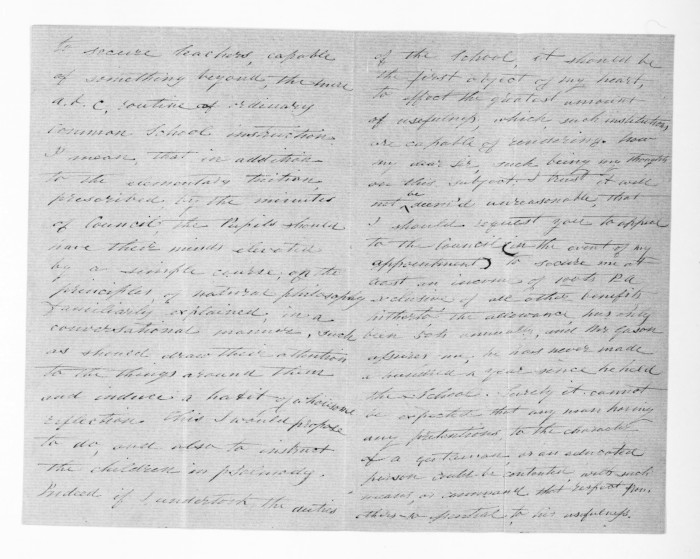 to secure teachers, capable
of something beyond, the mere
a.b.c. routine of ordinary
Common School instruction
I mean, that in addition
to the elementary tuition,
prescribed, by the minutes
of Council, the Pupils should
have their minds elevated
by a simple course, of the
principles, of natural philosophy
familiarly explained, in a
conversational manner, such
as should draw their attention
to the things around them
and induce a habit of wholesome
reflection. This I would propose
to do, and also to instruct
the children in psalmody.
Indeed if I undertook the duties
of the School, it should be
the first object of my heart,
to effect the greatest amount
of usefulness, which such institutions,
are capable of rendering. Now
my dear Sir, such being my thoughts
on this subject. I trust it will
not be deem'd unreasonable, that
I should request you to
to the Council (in the event of my
appointment) to secure me at
least an income of
exclusive of all other benefits
hitherto the allowance has only
been annually, and Mr
assures me, he has never made
a hundred a year since he held
the School. Surely it cannot
be expected that any man having
any pretentions, to the character
of a gentleman, or an educated
person could be contented with such
means, or command that respect from
others so essential to his usefulness.